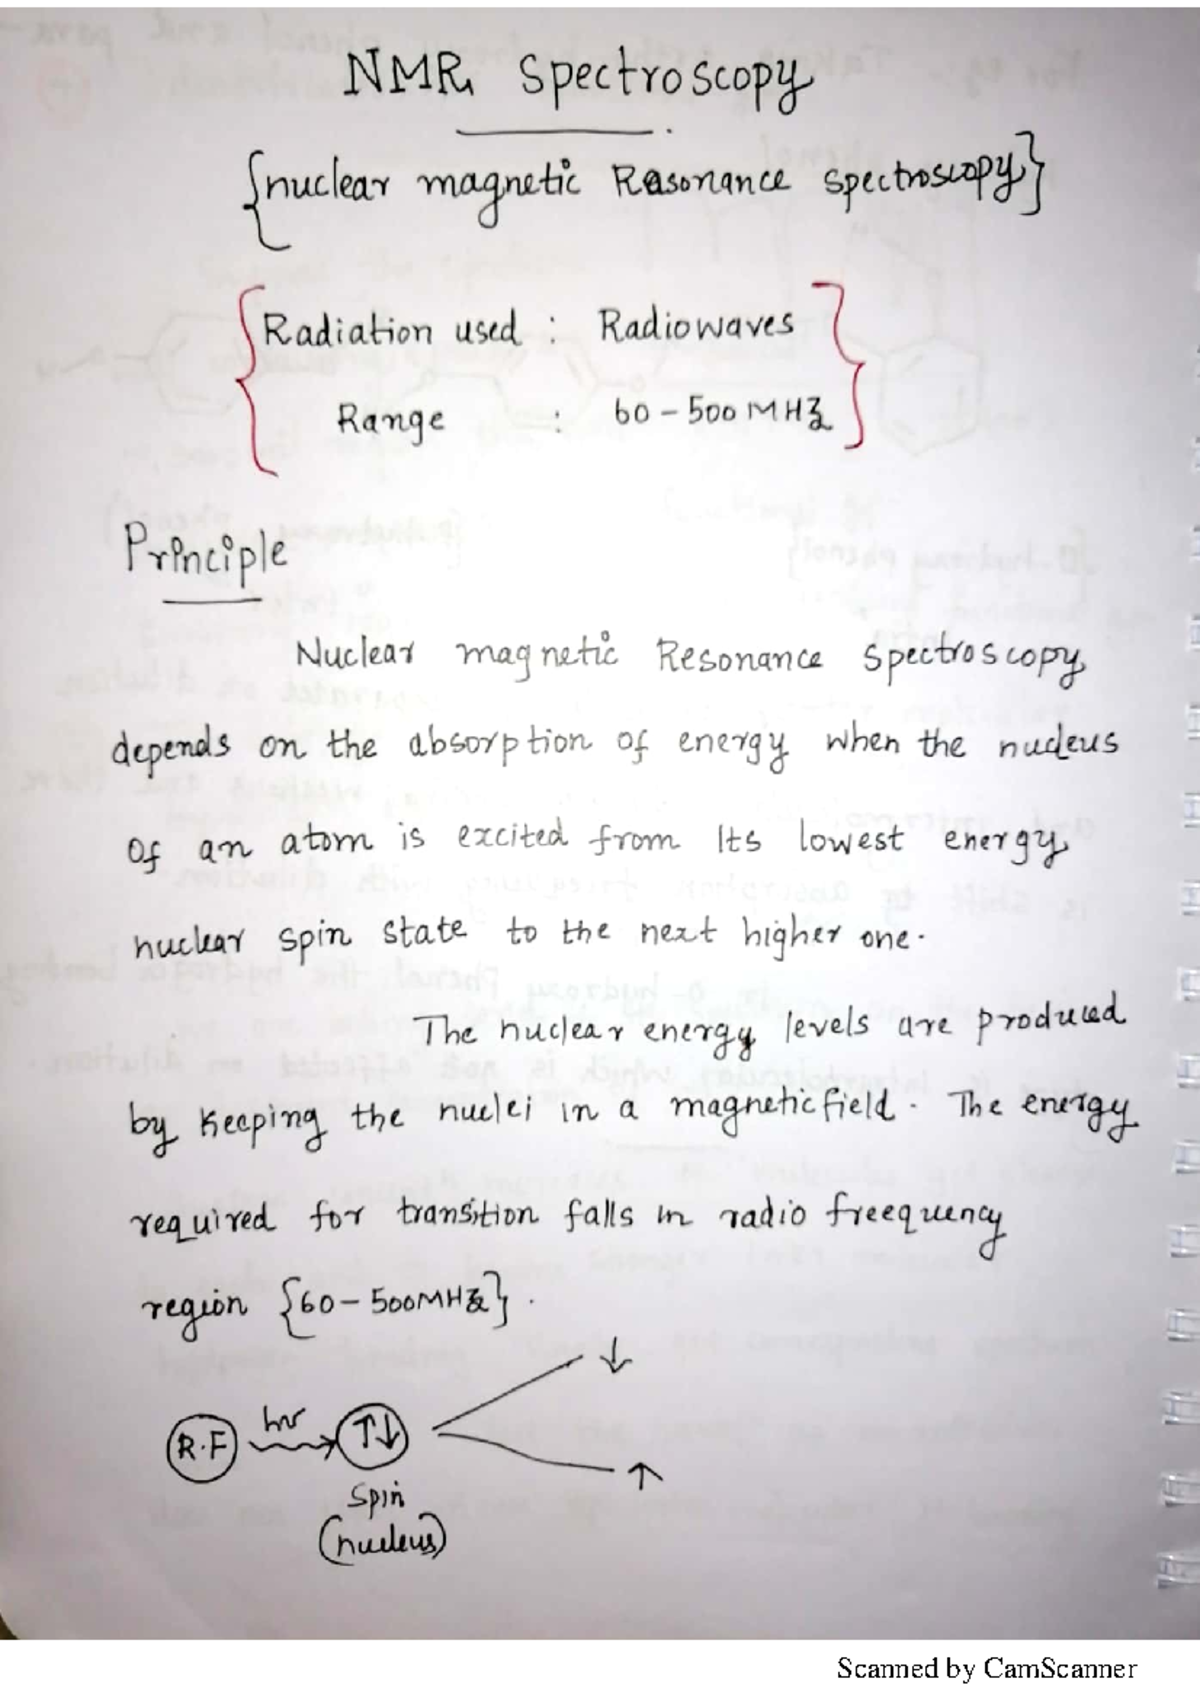 NMR Spectroscopy
{nuclear magnetic Resonance spectroscopy}
Radiation used : Radiowaves
Range : 60-500 MHz
Principle
Nuclear magnetic Resonance Spectroscopy
depends on the absorption of energy when the nucleus
of an atom is excited from Its lowest energy
nuclear spin state to the next higher one.
The nuclear energy levels are produced
by keeping the nuclei in a magnetic field. The energy
required for transition falls in radio freequency
region {60-500MHz}.
↓
R.F hν ↑↓
↑
spin
(nucleus)
Scanned by CamScanner